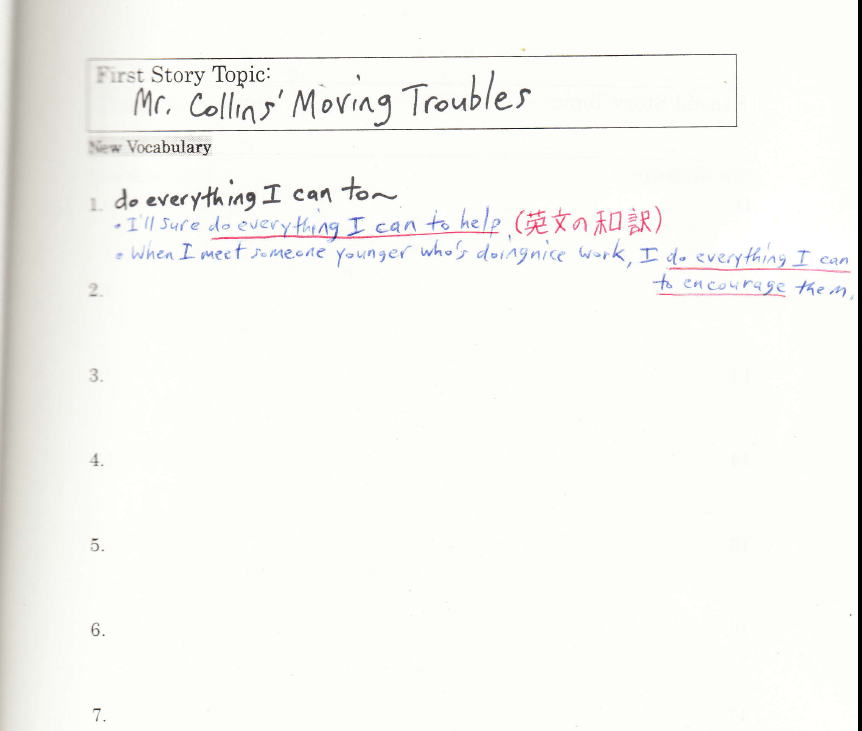 First Story Topic:
Mr. Collins' Moving Troubles
New Vocabulary
1. do everything I can to～
・I'll sure do everything I can to help. (英文の和訳)
・When I meet someone younger who's doingnice work, I do everything I can
to encourage them.
2.
3.
4.
5.
6.
7.